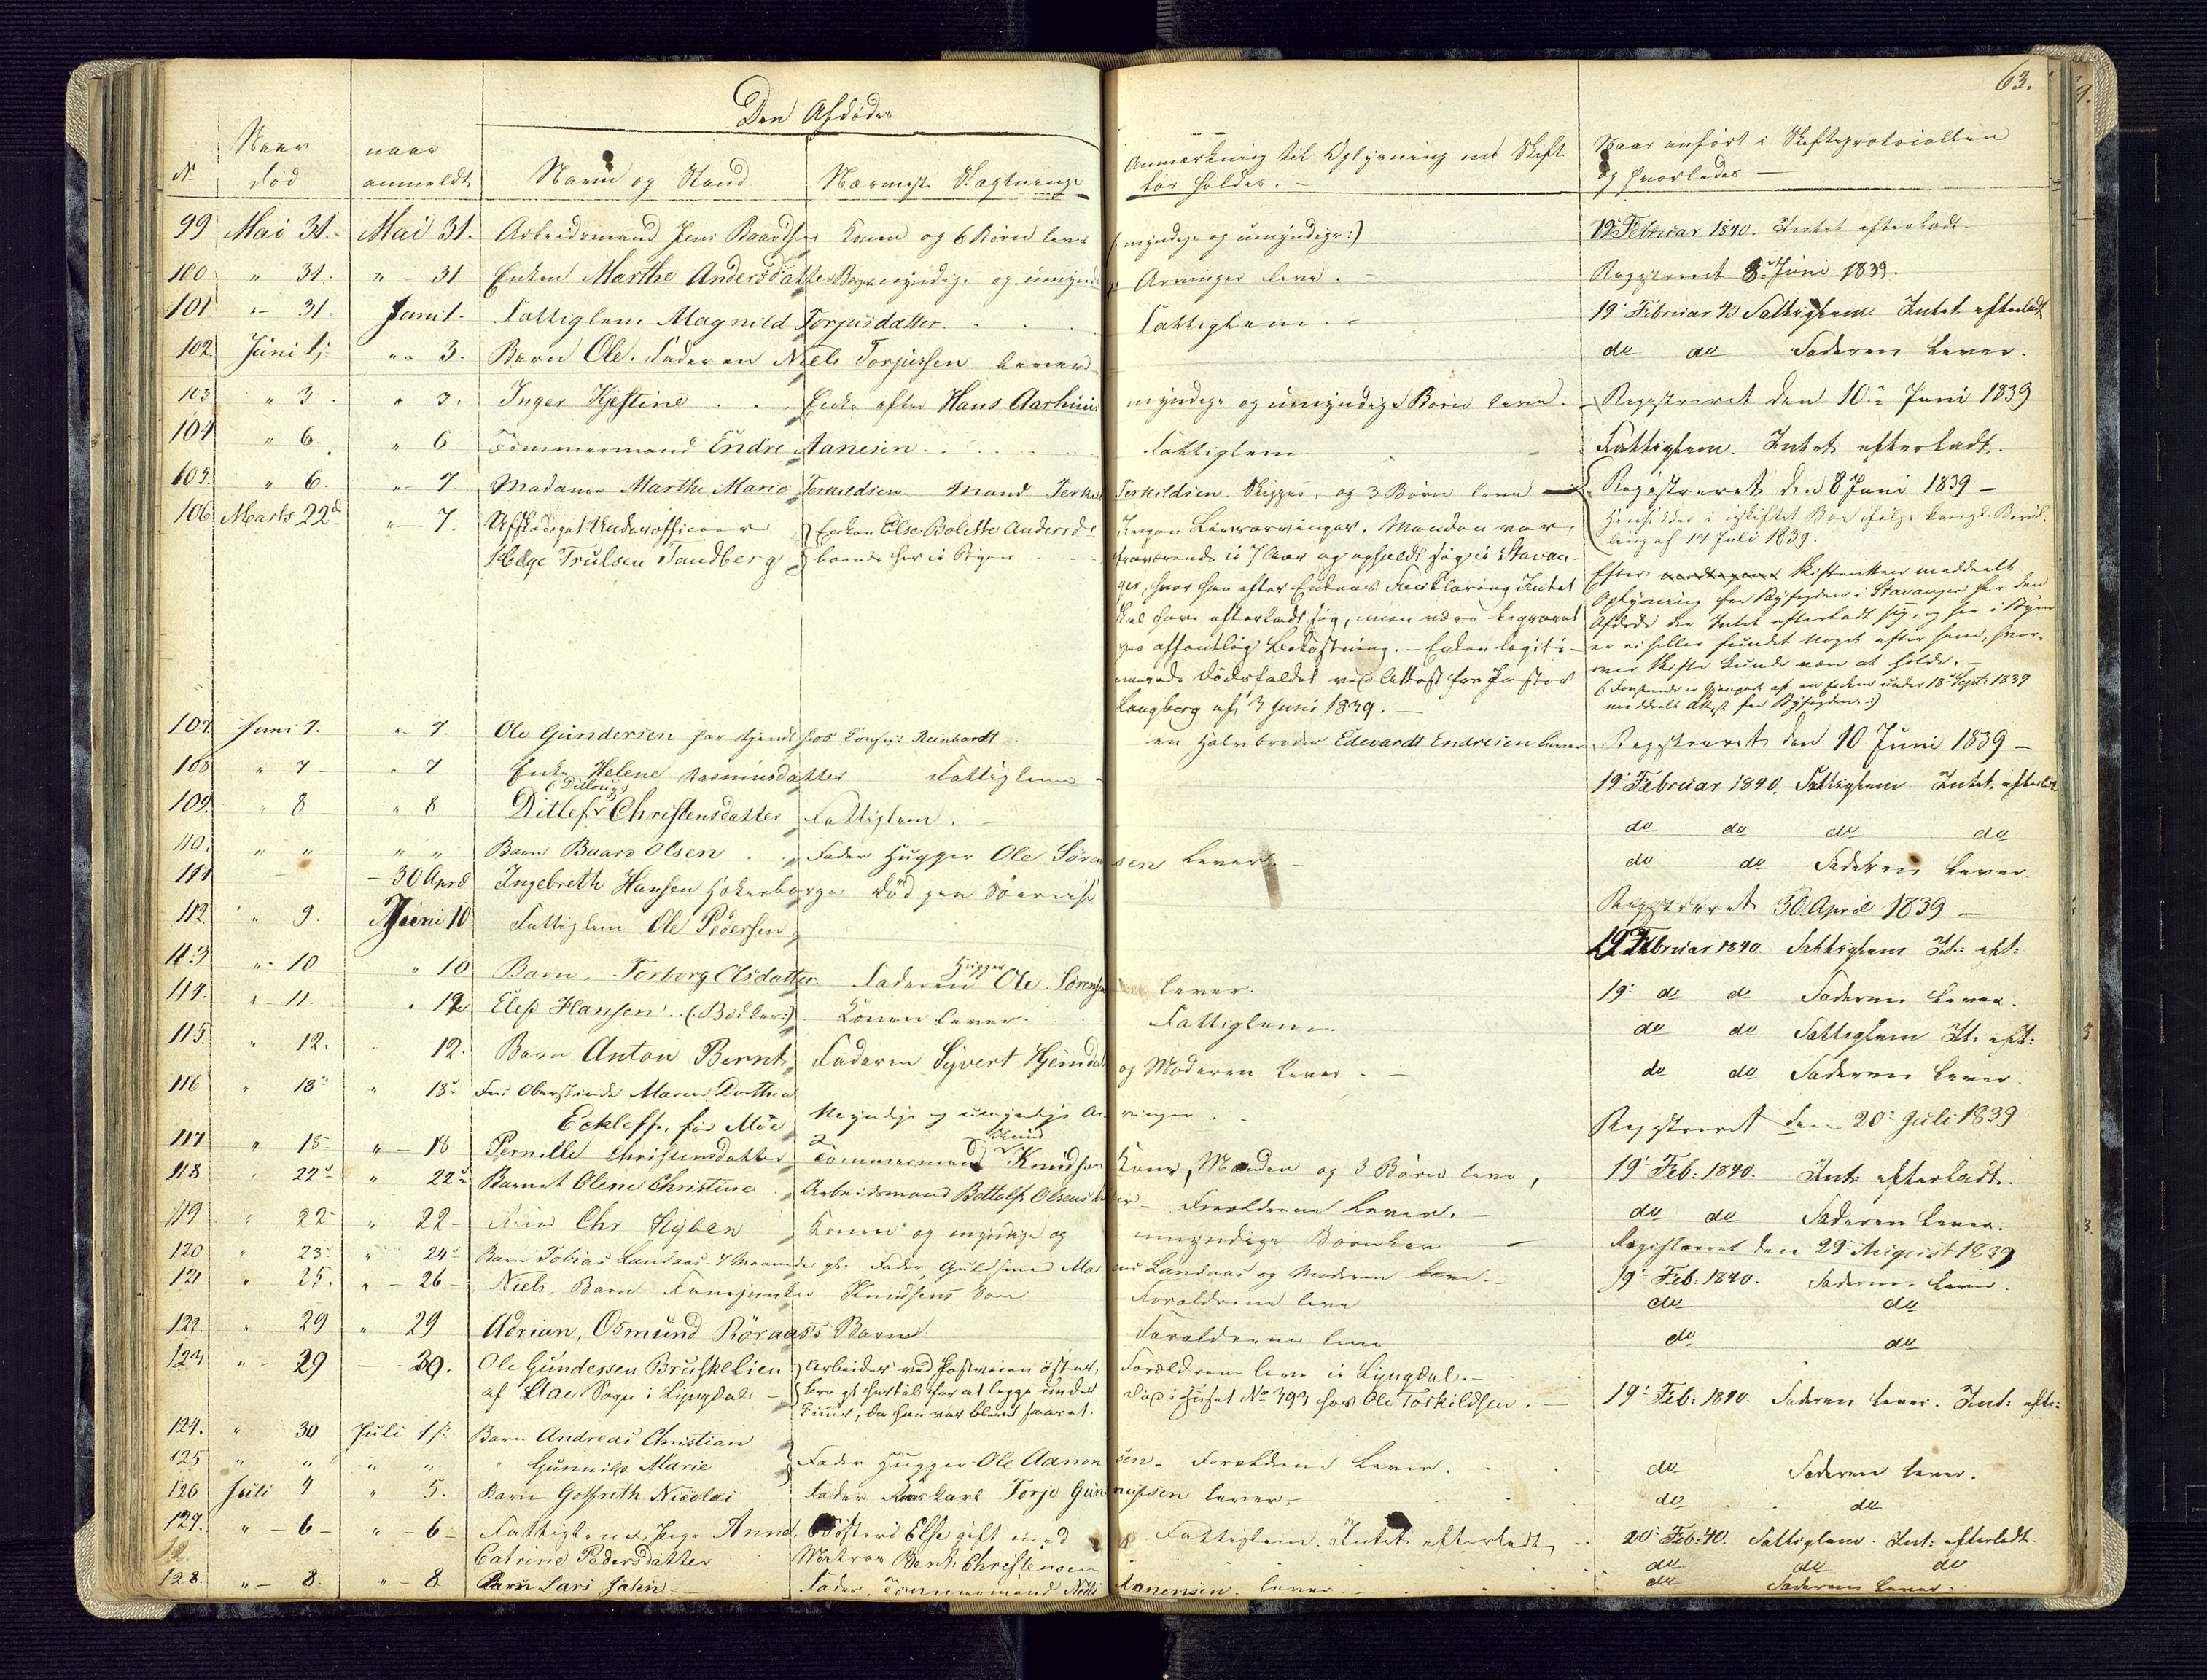 63.
Den Afdødes
No Naar død naar anmeldt Navn og Stand Nærmeste Slægtninge Anmærkning til Oplysning om Skifte bør holdes. — Naar anført i Skifteprotocollen og hvorledes —
99 Mai 31. Mai 31. Arbeidsmand Jens Baardsen Konen og 6 Børn leve (: myndige og umyndige :) 19 Februar 1840. Intet efterladt.
100 " 31. " 31 Enken Marthe Andersdatter myndige og umyndige Arvinger leve. — Registreret 8 Juni 1839.
101 " 31. Juni 1. Fattiglem Magnild Torjusdatter . . . Fattiglem. 19 Februar 40 Fattiglem Intet efterladt
102 Juni 1. " 3. Barn Ole. Faderen Niels Torjussen lever do do Faderen lever.
103 " 3. " 3. Inger Kjestine . . . Enke efter Hans Aarhuus myndige og umyndige Børn leve. — Registreret den 10 Juni 1839
104 " 6. " 6 Tømmermand Endre Aanesen . . . Fattiglem Fattiglem. Intet efterladt.
105. " 6. " 7. Madame Marthe Marie Terkildsen. Mand Terkild Terkildsen Skipper, og 3 Børn leve — Registreret den 8 Juni 1839 —
Hensidder i uskiftet Boe ifølge kongl. Bevil-
ling af 17 Juli 1839.
106 Marts 22d " 7. Afskediget Underofficeer Enken Else Bolette Andersdr. Ingen Livsarvinger. Manden var
Helge Trulsen Sandberg boende her i Byen fraværende i 7 Aar og opholdt sig i Stavan-
ger, hvor han efter Enkens Forklaring Intet
skal have efterladt sig, men være begravet
paa offentlig Bekostning. — Enken legiti-
merede Dødsfaldet ved Attest fra Pastor
Langberg af 3 Juni 1839. —
Efter Skifteretten meddeelt
Oplysning fra Byfogden i Stavanger har den
Afdøde der Intet efterladt sig, og her i Byen
er ei heller fundet noget efter ham, hvor-
over Skifte kunde være at holde. —
107. Juni 7. " 7. Ole Gundersen har tjent hos Reinhardt en Halvbroder Edevardt Endresen lever Registreret den 10 Juni 1839 —
108 " 7 — " 7 Enke Helene Rasmusdatter Fattiglem — 19 Februar 1840. Fattiglem. Intet efterladt
109. " 8 " 8 Ditlef Christensdatter Fattiglem. — do do do do
110. " " " " Barn Baard Olsen . . Fader Hugger Ole Sørensen lever. — do do Faderen lever.
111 — 30 April Ingebreth Hansen død paa Søereise Registreret 30 April 1839 —
112 " 9. Juni 10 Fattiglem Ole Pedersen 19 Februar 1840. Fattiglem It: eft:
113 " 10 " 10 Barn. Torborg Olsdatter. Faderen Hugger Ole Sørensen lever. 19 do do Faderen lever.
114. " 11. " 12 Elef Hansen (: Bødker :) Konen lever. Fattiglem. do do Fattiglem It: eft:
115. " 12. 12. Barn Anton Bernt. Faderen Syvert Hjemdal og Moderen lever. — do do Faderen lever.
116 " 18 " 18 Fru Oberstinde Maren Dorthea
Eckleff, fød Møe Myndige og umyndige Arvinger. — Registreret den 20 Juli 1839
117 " 18 " — 18 Pernille Christensdatter Tømmermand Knud Knudsens Kone, Manden og 3 Børn leve, 19 Feb: 1840. Int: efterladt.
118 " 22 " 22 Barnet Olene Christine Arbeidsmand Bottolf Olsens Forældrene lever. — do do Faderen lever.
119 " 22 " 22 — Chr Nyben Konen og myndige og umyndige Børn lev — Registreret den 29 August 1839
120 " 23 " 24 Barn Tobias Landaas 7 Maaneder gl: Fader, Guldsmed Landaas og Moderen leve. — 19 Feb: 1840. Faderen lever.
121 " 25. " — 26 — Niels, Barn Knudsens Søn Forældrene leve do do
122. " 29 " 29 Adrian, Osmund Röraas's Barn Forældrene leve do do
123 " 29 — 29. Ole Gundersen Bruskelien Arbeider ved Postveien øster, Forældrene leve i Lyngdal. —
af Aae Sogn i Lyngdal — bragt hertil for at legge under død i Huset No 393 hos Ole Torkildsen. — 19 Feb: 1840. Faderen lever. Int: efter:
Cuur, da han var bleven saaret.
124. " 30 Juli 1. Barn Andreas Christian
125 " " " " " Gunnild Marie Fader Hugger Ole Aanonsen. Forældrene lever. do Faderen lever.
126 Juli 4 " 5. Barn Gotfreth Nicolai Fader Torje Gunnufsen lever. do do
127. " — 6 — " — 6 — Fattiglem, Anne Else gift med Fattiglem. Intet efterladt 20 Feb: 40. Fattiglem. Int: efterladt.
Catrine Pedersdatter Matros Bent Christensen do do do
128. " — 8. " — 8 Barn Lars Fader, Tømmermand Niels Aanensen lever do Faderen lever.